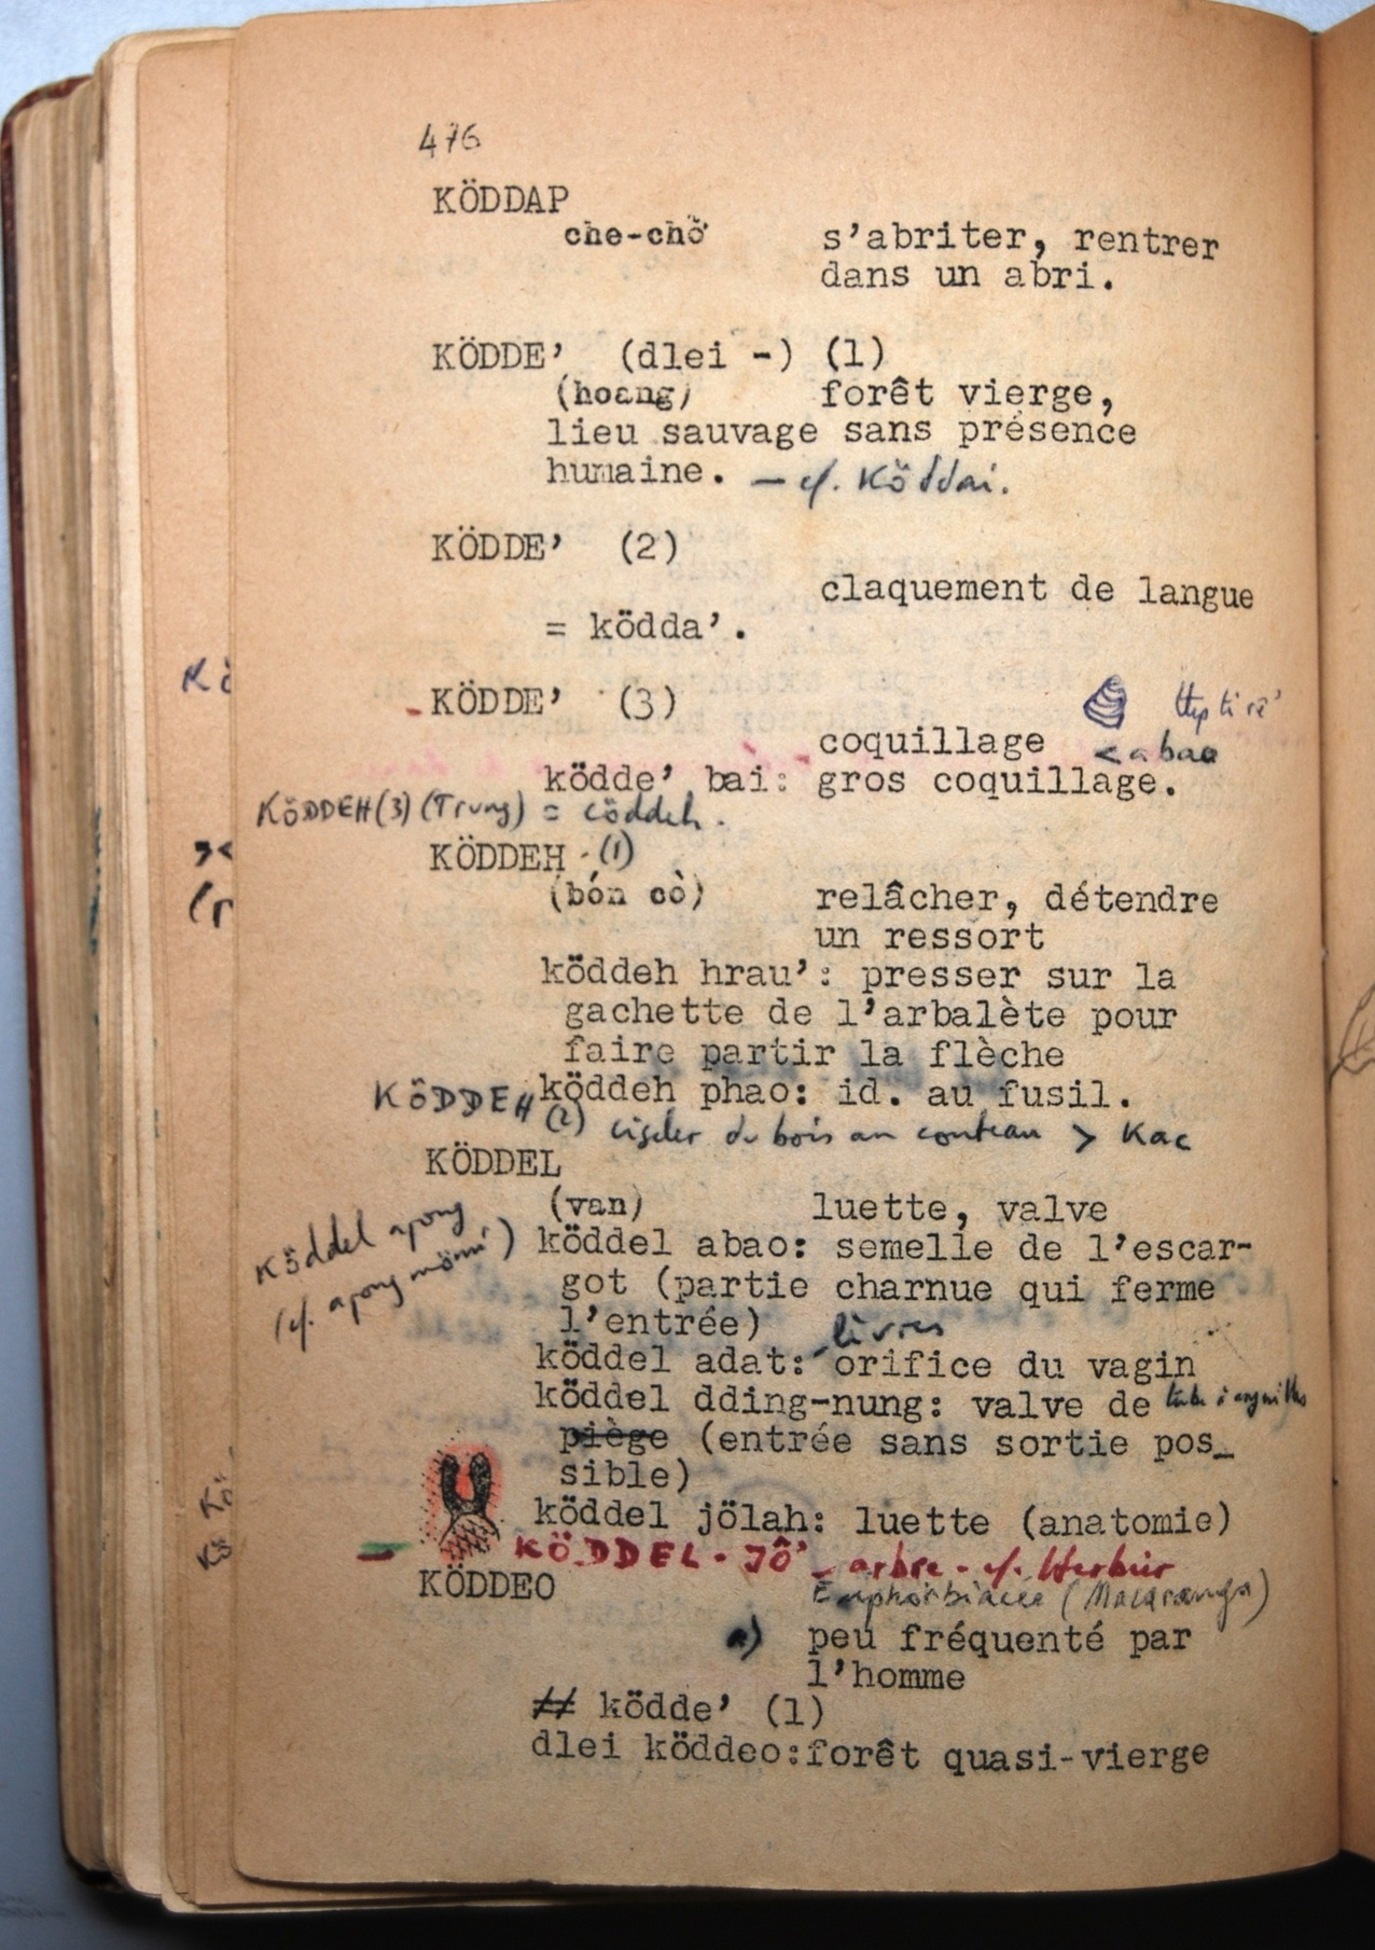 476
KÖDDAP
che-chở
s'abriter, rentrer
dans un abri.
KÖDDE' (dlei -) (1)
(hoang) forêt vierge,
lieu sauvage sans présence
humaine. — cf. Köddai.
KÖDDE' (2)
claquement de langue
= ködda'.
KÖDDE' (3)
coquillage < abao
ködde' bai: gros coquillage.
KÖDDEH (3) (Trung) = cöddeh.
KÖDDEH (1)
(bón cò) relâcher, détendre
un ressort
köddeh hrau': presser sur la
gachette de l'arbalète pour
faire partir la flèche
köddeh phao: id. au fusil.
KÖDDEH (2) ciseler du bois au couteau > Kac
KÖDDEL
(van) luette, valve
köddel apong
(cf. apong mömi')
köddel abao: semelle de l'escar-
got (partie charnue qui ferme
l'entrée)
lèvres
köddel adat: orifice du vagin
köddel dding-nung: valve de tube à anguilles
piège (entrée sans sortie pos_
sible)
köddel jölah: luette (anatomie)
KÖDDEL-JÔ' - arbre - cf. Herbier
Euphorbiacée (Macaranga)
KÖDDEO
a) peu fréquenté par
l'homme
// ködde' (1)
dlei köddeo:forêt quasi-vierge